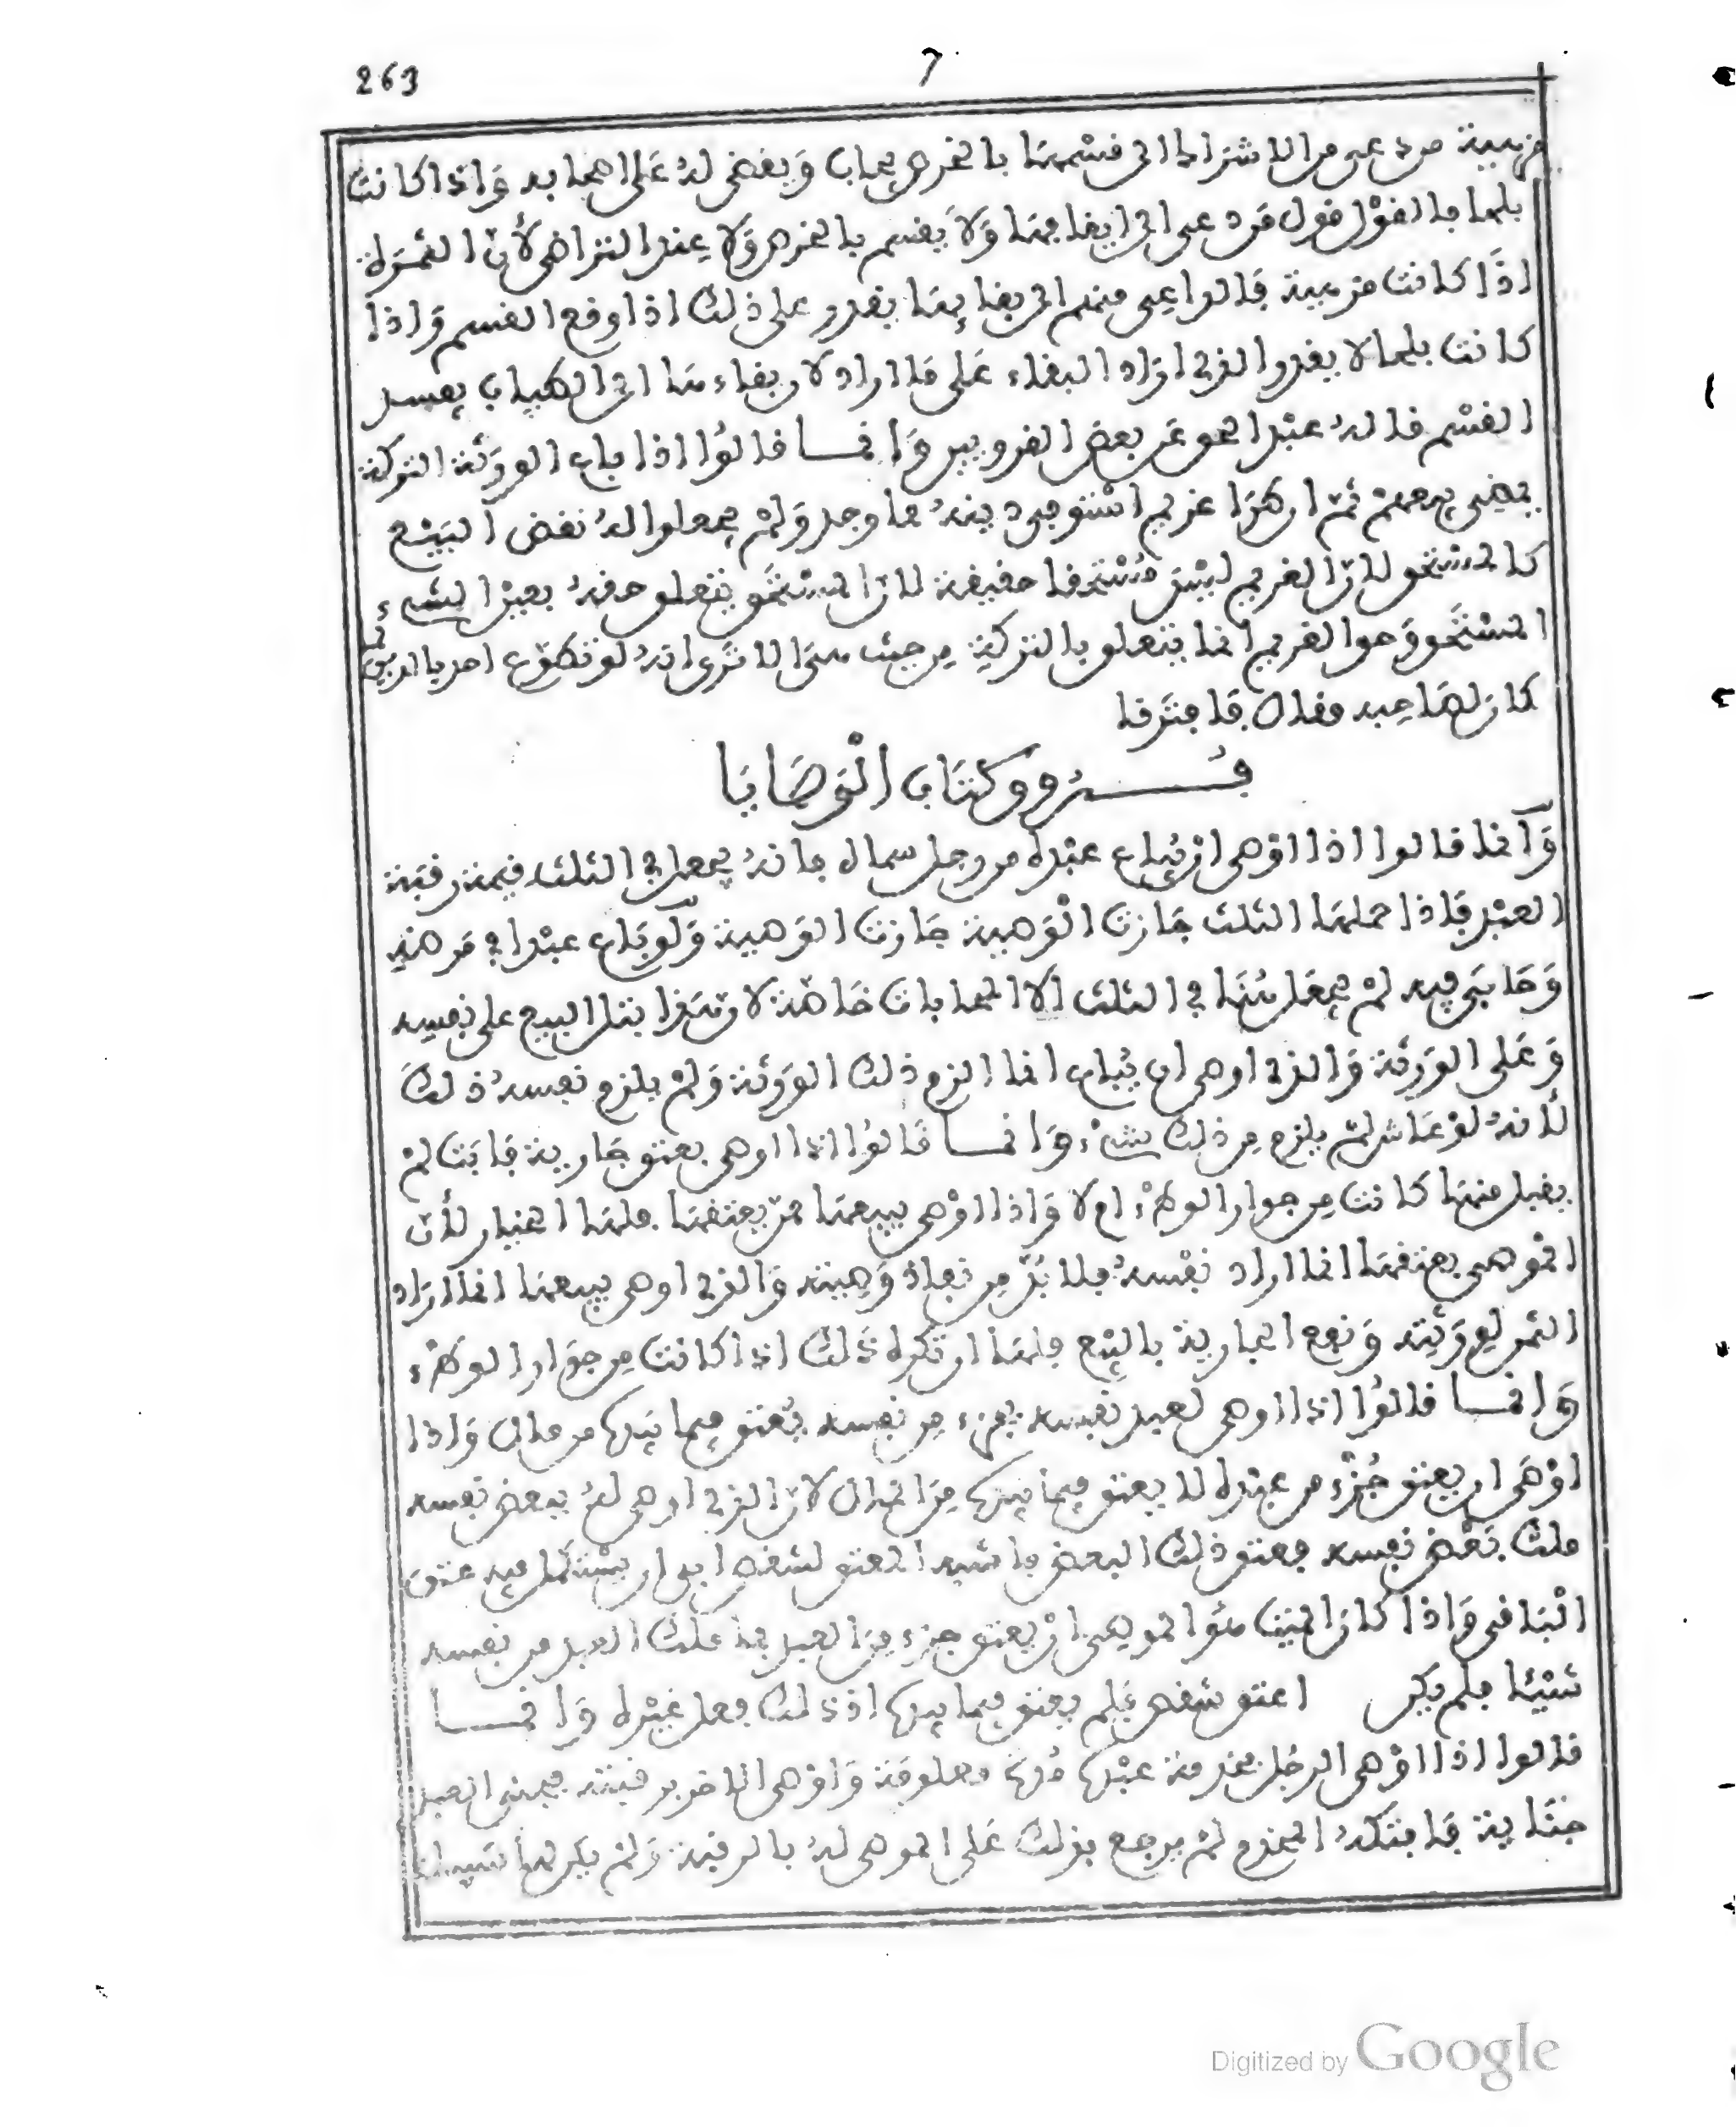 263
7
من دعى من الاشراك الى قسمتها بالخرص يجاب ويقضى له على اصحابه واذا كانت
بلحا فالقول قول من دعى الى ابقائها ولا يقسم بالخرص ولا عند التراضى لأن الثمرة
اذا كانت قالوا على بقائها يقدر على ذلك اذا وقع القسم واذا
كانت بلحا لا يقدر الذى اراد البقاء على ما اراد لان بقاءها الى الطياب يفسد
القسم قاله عبد الحق عن بعض القرويين وانما قالوا اذا باع الورثة التركة
بيعهم ثم ان طرا غريم استوفى دينه مما وجد ولم يجعلوا له نقض البيع
كالمستحق لان الغريم ليس مستحقا حقيقة لان المستحق يتعلق حقه بعين الشىء
المستحق وحق الغريم انما يتعلق بالتركة من حيث الا ترى انه لو تطوع احد بالدين
كان لصاحبه مقال فافترقا
فـروق كتاب الوصايا
وانما قالوا اذا اوصى ان يباع عبده من رجل بمال فانه يجعل فى الثلث قيمة رقبة
العبد فاذا حملها الثلث جازت الوصية جازت الوصية ولو باع عبدا فى مرضه
وحابى فيه لم يجعل منها فى الثلث الا المحابات خاصة لان هذا بتل البيع على نفسه
وعلى الورثة والذى اوصى ان يباع انما الزم ذلك الورثة ولم يلزم نفسه ذلك
لأنه لو عاش لم يلزم من ذلك شىء وانما قالوا اذا اوصى بعتق جارية فابت لم
يقبل منها كانت من جوار الوطء ام لا واذا اوصى ببيعها ممن يعتقها فلها الخيار لأن
الموصى بعتقها انما اراد نفسه فلا بد من نفاذ وصيته والذى اوصى ببيعها انما اراد
الثمن لورثته ونفع الجارية بالبيع فلها ان تكره ذلك اذا كانت من جوار الوطء
وانما قالوا اذا اوصى لعبد نفسه بجزء من نفسه يعتق فيما بيده من مال واذا
اوصى ان يعتق جزء من عبده لا يعتق فيما بيده من المال لان الذى اوصى له ببعض نفسه
ملك بعض نفسه فعتق ذلك البعض فاشبه المعتق لشقص ان يستكمل فيه عتق
الباقى واذا كان الميت هو الموصى ان يعتق جزء من العبد فما ملك العبد من نفسه
شيئا فلم يكن اعتق شقص فلم يعتق فيما بيده اذ ذلك فعل غيره وانما
قالوا اذا اوصى الرجل بخدمة عبده مدة معلومة واوصى لآخر برقبته فجنى العبد
جناية فافتكه المخدم لم يرجع بذلك على الموصى له بالرقبة ولم يكن لها سبيل
Digitized by Google